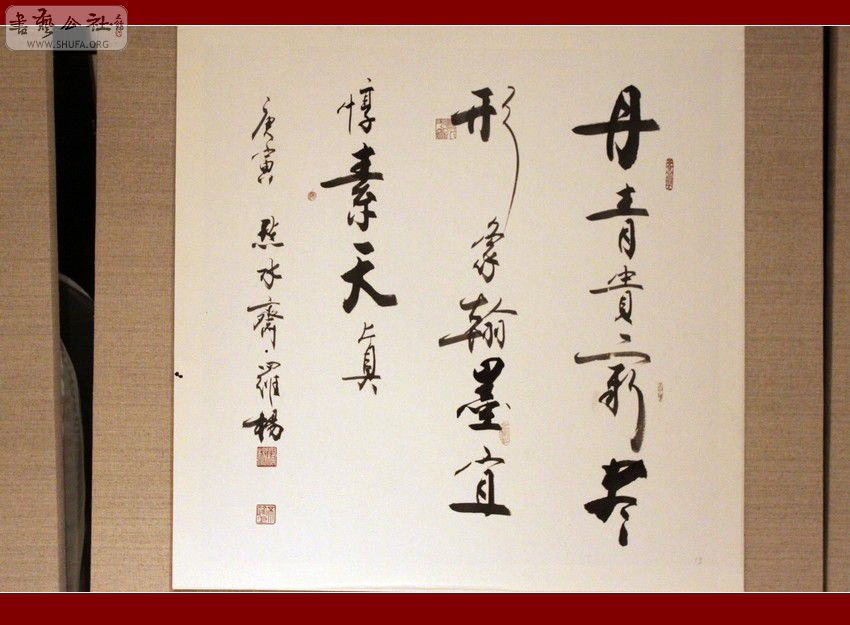 書藝公社
WWW.SHUFA.ORG
丹青貴尽
形象翰墨宜
惇素天真
庚寅 點水齋·羅楊